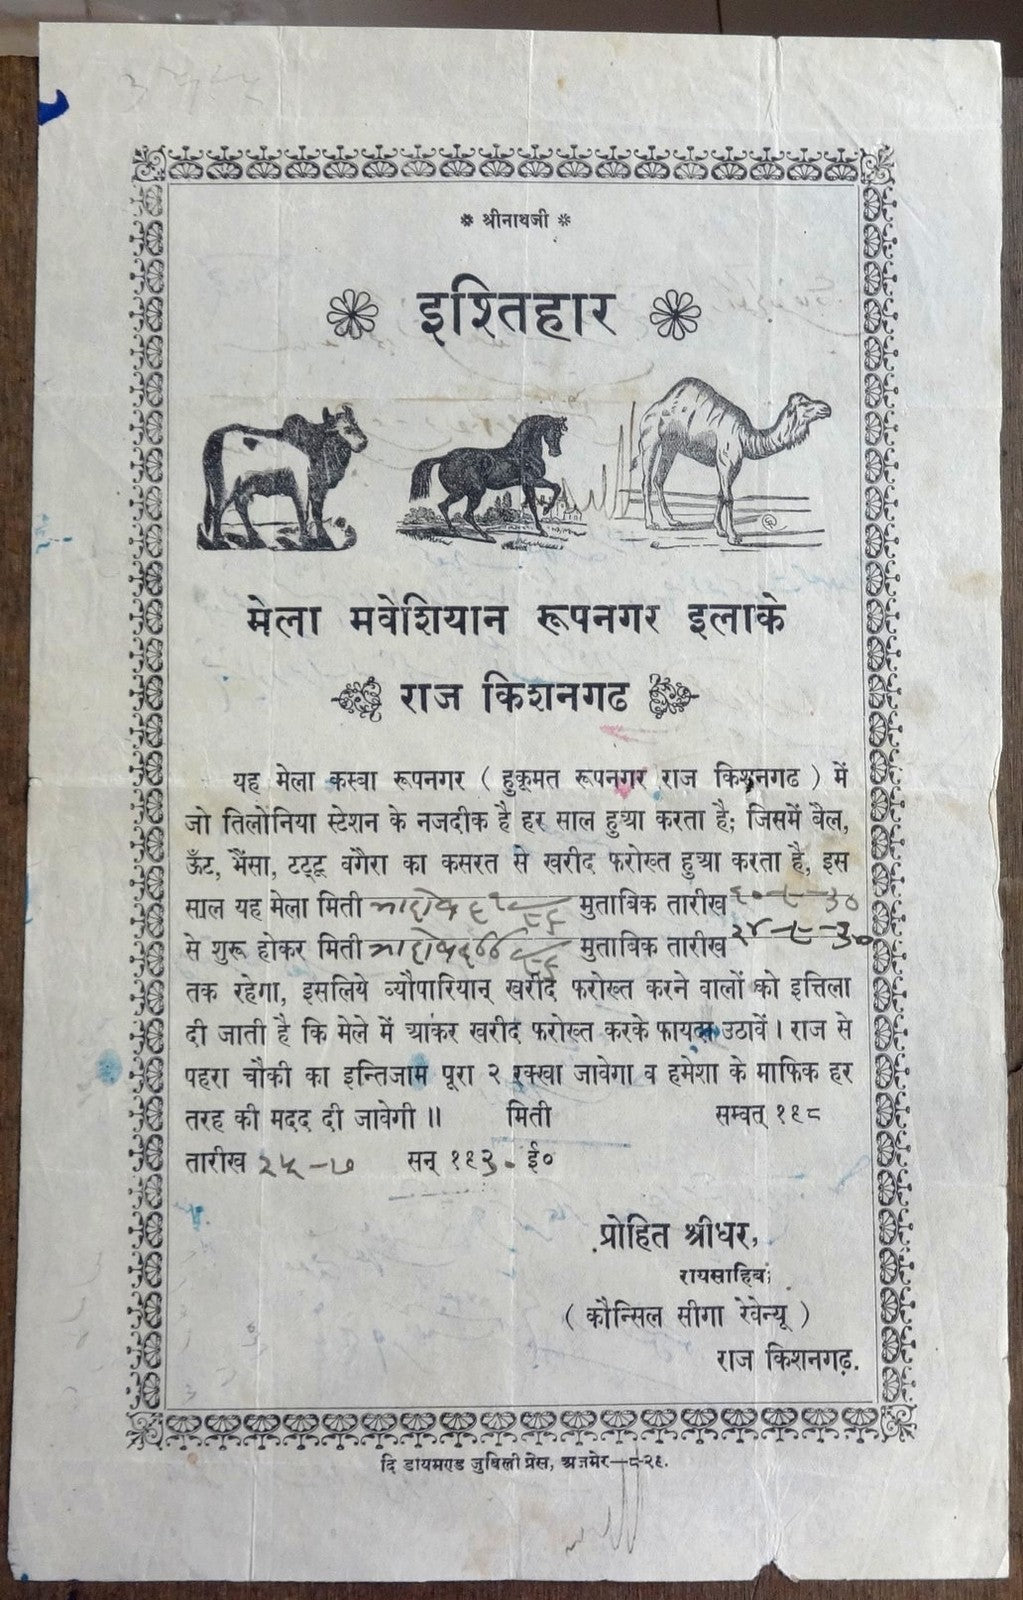 ❋ श्रीनाथजी ❋
इश्तिहार
मेला मवेशियान रूपनगर इलाके
राज किशनगढ
यह मेला कस्बा रूपनगर ( हुकूमत रूपनगर राज किशनगढ ) में
जो तिलोनिया स्टेशन के नजदीक है हर साल हुआ करता है; जिसमें बैल,
ऊँट, भैंसा, टट्टू वगैरा का कसरत से खरीद फरोख्त हुआ करता है, इस
साल यह मेला मिती मुताबिक तारीख
से शुरू होकर मिती मुताबिक तारीख २४-९-३०
तक रहेगा, इसलिये ब्यौपारियान् खरीद फरोख्त करने वालों को इत्तिला
दी जाती है कि मेले में आकर खरीद फरोख्त करके फायदा उठावें । राज से
पहरा चौकी का इन्तिजाम पूरा २ रक्खा जावेगा व हमेशा के माफिक हर
तरह की मदद दी जावेगी ॥ मिती सम्वत् १९८
तारीख २५-७ सन् १९३० ई०
प्रोहित श्रीधर,
रायसाहिब;
( कौन्सिल सीगा रेवेन्यू )
राज किशनगढ़.
दि डायमण्ड जुबिली प्रेस, अजमेर—८-२९.